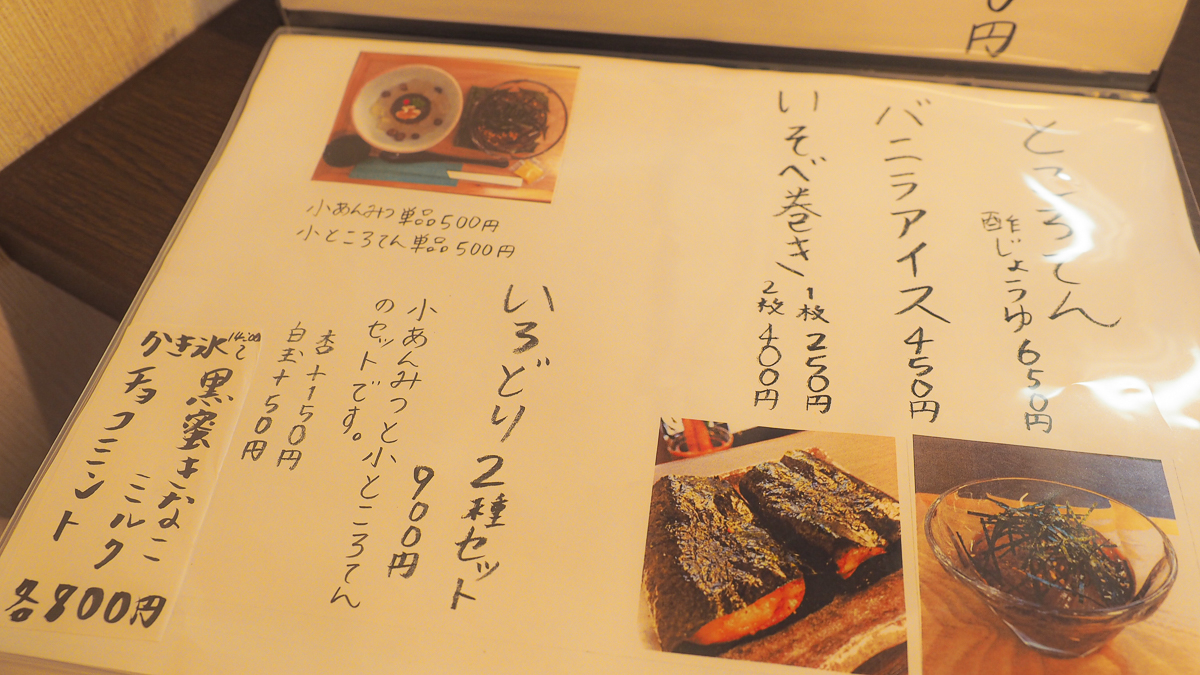 円
ところてん
酢じょうゆ 650円
バニラアイス 450円
いそべ巻き
1枚 250円
2枚 400円
小あんみつ単品500円
小ところてん単品500円
いろどり2種セット
900円
小あんみつと小ところてん
のセットです。
杏+150円
白玉+50円
かき氷
黒蜜きなこ
ミルク
チョコミント
各800円